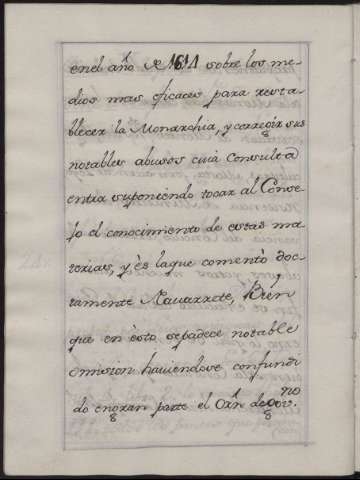 en el año de 1619 sobre los me-
dios mas eficaces para resta-
blecer la Monarchia, y corregir sus
notables abusos cuia Consulta
entra suponiendo tocar al Conse-
jo el conocimiento de estas ma-
terias, y ès la que comentò doc-
tamente Navarrete, Bien
que en èsto se padece notable
omision haviendose confundi-
do en gran parte el Orn. de Gov.no